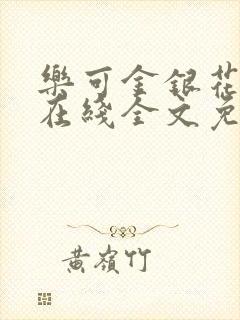 樂可金銀花
在綫全文免
黃嶺竹